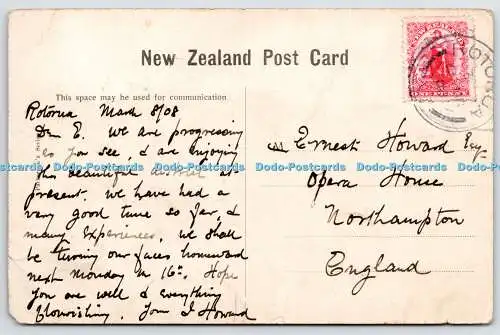 New Zealand Post Card
This space may be used for communication
Rotorua March 8/08
Dr E. We are progressing
as you see, & are enjoying
this beautiful at
present. We have had a
very good time so far, &
many experiences, we shall
be turning our faces homeward
next Monday th 16th. Hope
you are well & everything
flourishing. Your J Howard
Ernest Howard Esq
Opera House
Northampton
England
ONE PENNY
ROTORUA
Dodo-Postcards Dodo-Postcards Dodo-Postcards Dodo-Postcards Dodo-Postcards